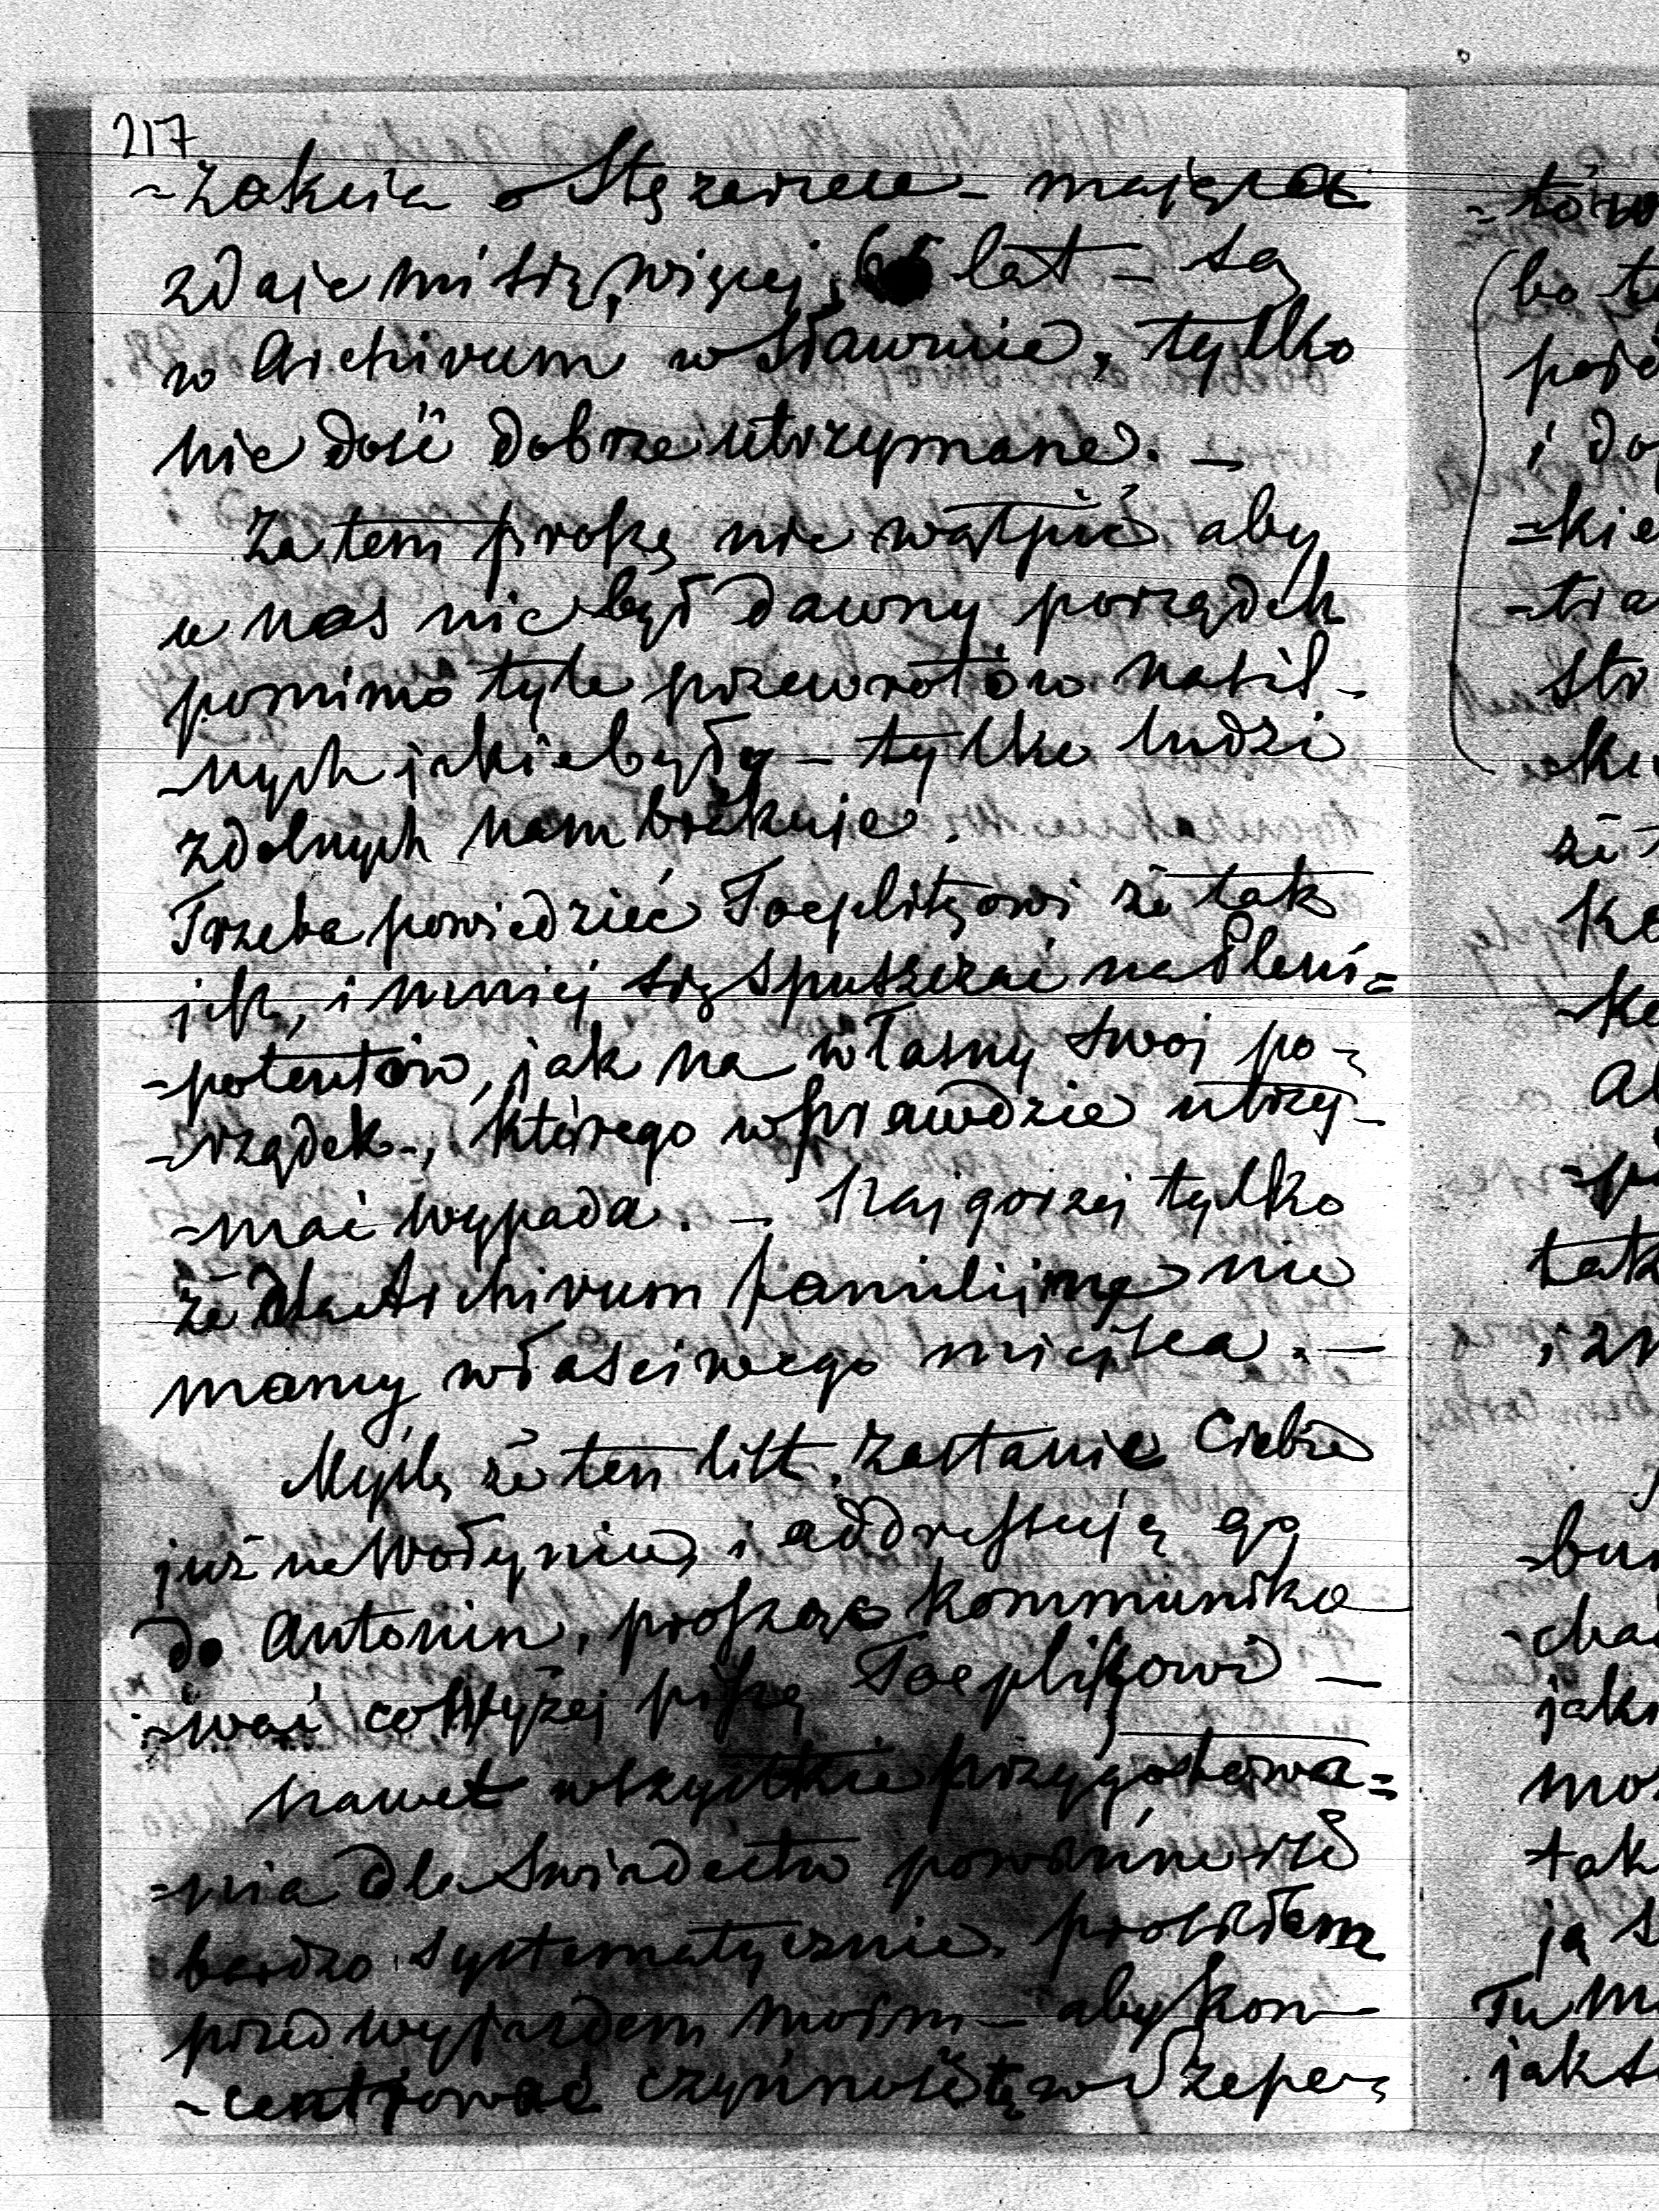 217
-żakeia o Stężeirere - mające
zdaje mi się, więcej, 6 lat - są
w Archivum w Sławucie, tylko
nie dość dobrze utrzymane. -
Za tem proszę nie wątpić aby
u nas nie był dawny porządek
pomimo tyle przewrotów nasil-
-nych jakie były - tylko ludzi
zdolnych nam brakuje.
Trzeba powiedzieć Toeplitzowi że tak
jest, i mniej się spuszczać na Pleni=
-potentów, jak na własny swoj po-
-rządek-, którego wprawdzie utrzy-
-mać wypada. - Najgorzej tylko
że dla Archivum familijne nie
mamy właściwego miejsca. -
Myślę że ten list zastanie Ciebie
już na Wołyniu, i addressuję go
do Antonin, proszę kommuniko
-wać co wyżej piszę Toeplitzowi -
Nawet wszystkie przygotowa=
=nia dla Swiadectw powinne iść
bardzo systematycznie, prosiłem
przed wyjazdem moim - aby kon-
-centrować czynność tę w Szepe-
=tow
bo
i do
=kie
-tra
str
że
tak
jak
mo
tak
ją s
Tu m
jak s